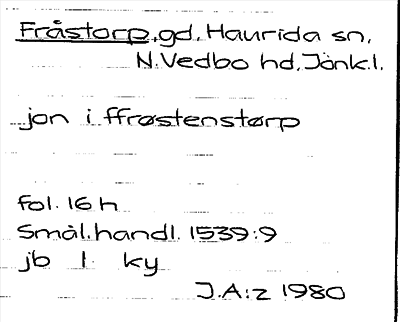 Fråstorp, gd, Haurida sn,
N. Vedbo hd, Jönk.l.
jon i ffrøstenstørp
fol. 16 h
Smål. handl. 1539:9
jb l ky
J.A:2 1980